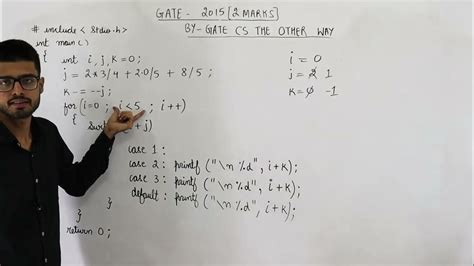 GATE - 2015 [2 MARKS]
BY- GATE CS THE OTHER WAY
# include < Stdio.h>
int main()
{ int i, j, k=0;
j = 2*3/4 + 2.0/5 + 8/5 ;
k -= --j ;
for (i=0 ; i<5 ; i++)
{ + j)
case 1 :
case 2 : printf ("\n %d", i+k);
case 3 : printf ("\n %d", i+k);
default : printf ("\n %d", i+k);
}
}
return 0 ;
i = 0
j = 2 1
k = 0 -1